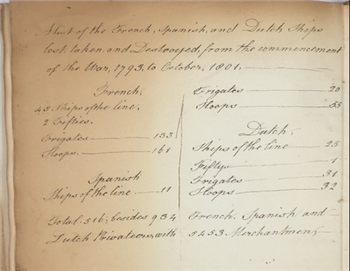 A List of the French, Spanish, and Dutch Ships
lost, taken, and Destroyed, from the commencement
of the War, 1793, to October, 1801.
French.
45 Ships of the line,
2 Fifties.
Frigates 133
Sloops 161
Spanish
Ships of the line 11
Frigates 20
Sloops 55
Dutch.
Ships of the line 25
Fiftys 1
Frigates 31
Sloops 32
Total 516; besides 934 French, Spanish and
Dutch Privateers, with 5453 Merchantmen,